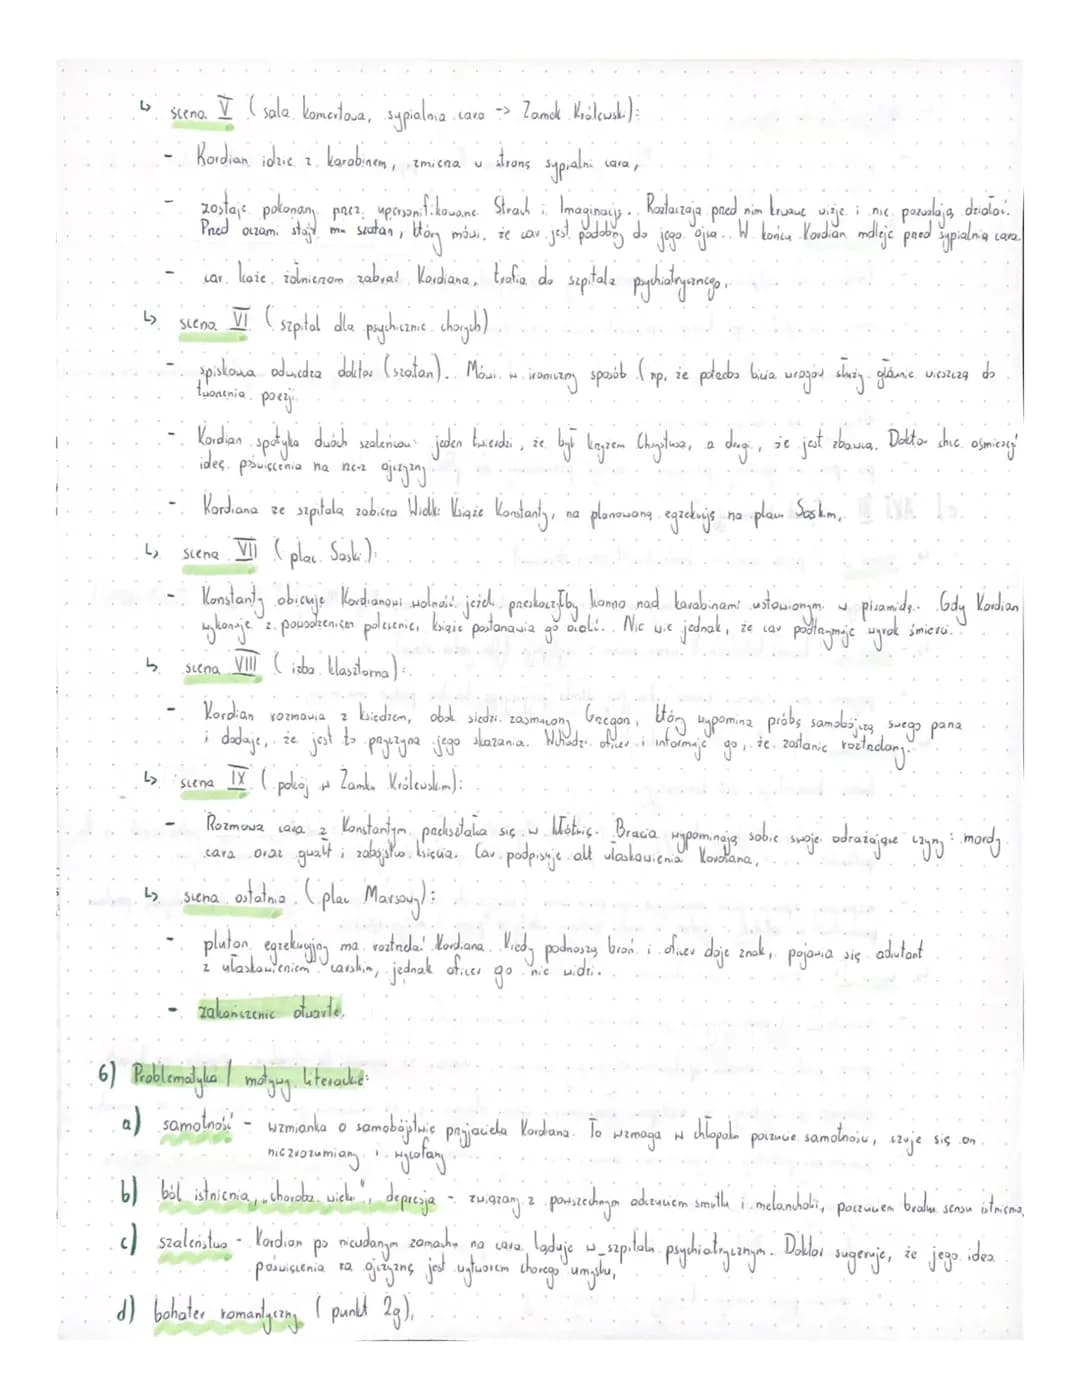 ↳ scena V (sala koncertowa, sypialnia cara -> Zamek Królewski):
- Kordian idzie z karabinem, zmierza w stronę sypialni cara,
- zostaje pokonany przez upersonifikowane Strach i Imaginację. Roztaczają przed nim krwawe wizje i nie pozwalają działać.
Przed oczami staje mu szatan, który mówi, że car jest podobny do jego ojca. W końcu Kordian mdleje przed sypialnią cara.
- car każe żołnierzom zabrać Kordiana, trafia do szpitala psychiatrycznego,
↳ scena VI (szpital dla psychicznie chorych)
- spiskowca odwiedza doktor (szatan). Mówi w ironiczny sposób (np, że potęda bicia wrogów służy głównie wieszczą do
tworzenia poezji.
- Kordian spotyka dwóch szaleńców: jeden twierdzi, że był krzyżem Chrystusa, a drugi, że jest zbawcą. Doktor chce ośmieszyć
ideę poświęcenia na rzecz ojczyzny.
- Kordiana ze szpitala zabiera Wielki Książe Konstanty, na planowaną egzekucję na placu Saskim,
↳ scena VII (plac Saski):
- Konstanty obiecuje Kordianowi wolność jeżeli przeskoczyłby konno nad karabinami ustawionymi w piramidę. Gdy Kordian
wykonuje z powodzeniem polecenie, książe postanawia go ocalić. Nie wie jednak, że car podtrzymuje wyrok śmierci.
↳ scena VIII (izba klasztorna):
- Kordian rozmawia z księdzem, obok siedzi zasmucony Grzegorz, który wypomina próbę samobójczą swego pana
i dodaje, że jest to przyczyna jego skazania. Wchodzi oficer i informuje go, że zostanie roztrzelany.
↳ scena IX (pokój w Zamku Królewskim):
- Rozmowa cara z Konstantym przekształca się w kłótnię. Bracia wypominają sobie swoje odrażające czyny: mordy
cara oraz gwałt i zabójstwo księcia. Car podpisuje akt ułaskawienia Kordiana,
↳ scena ostatnia (plac Marsowy):
- pluton egzekucyjny ma roztrzelać Kordiana. Kiedy podnoszą broń i oficer daje znak, pojawia się adiutant
z ułaskawieniem carskim, jednak oficer go nie widzi.
- zakończenie otwarte.
6) Problematyka / motywy literackie:
a) samotność - wzmianka o samobójstwie przyjaciela Kordiana. To wzmaga w chłopaku poczucie samotności, czuje się on
niezrozumiany i wycofany
b) ból istnienia, "choroba wieku", depresja - związany z powszechnym odczuciem smutku i melancholii, poczuciem braku sensu istnienia,
c) szaleństwo - Kordian po nieudanym zamachu na cara ląduje w szpitalu psychiatrycznym. Doktor sugeruje, że jego idea
poświęcenia za ojczyznę jest wytworem chorego umysłu,
d) bohater romantyczny (punkt 2g),